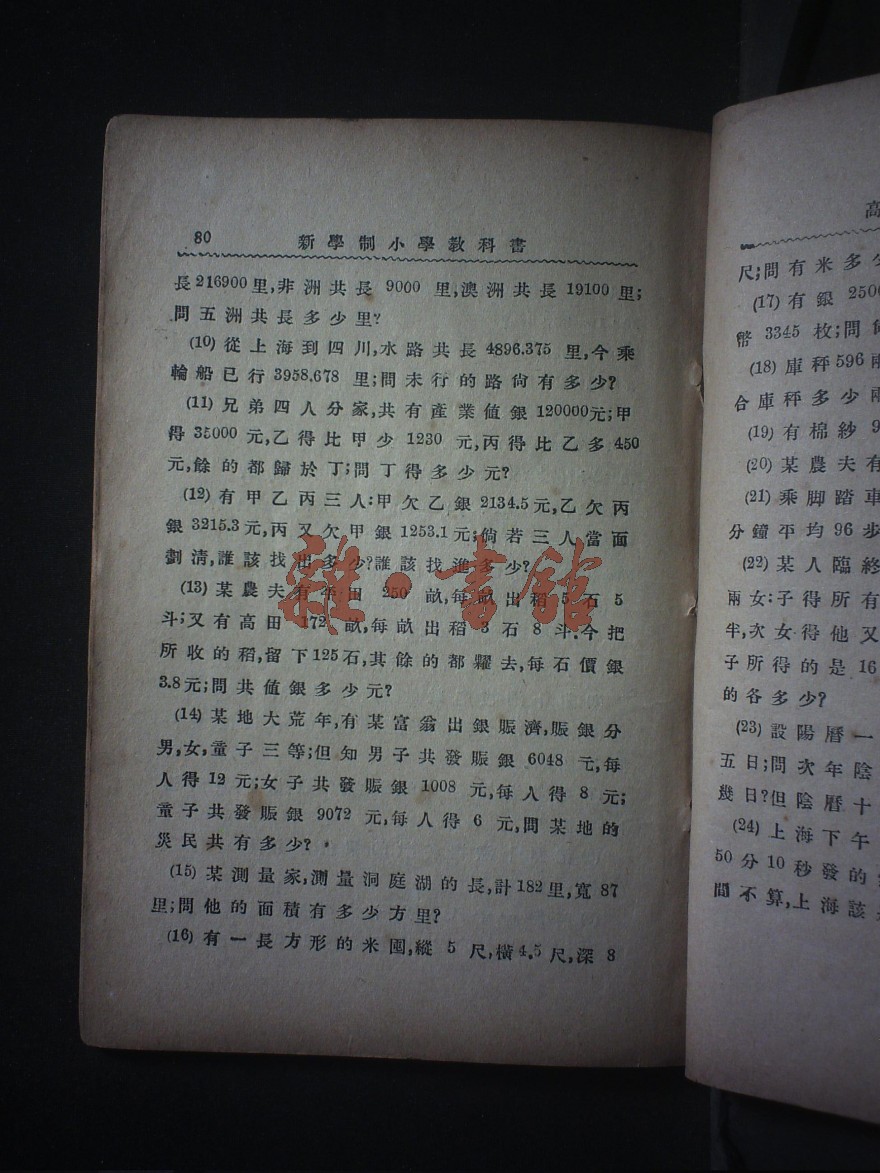 80 新學制小學教科書
長216900里,非洲共長 9000 里,澳洲共長19100里;
問五洲共長多少里?
(10)從上海到四川,水路共長4896.375 里,今乘
輪船已行3958.678 里;問未行的路尙有多少?
(11)兄弟四人分家,共有產業値銀120000元;甲
得35000元,乙得比甲少1230 元,丙得比乙多450
元,餘的都歸於丁;問丁得多少元?
(12)有甲乙丙三人:甲欠乙銀2134.5元,乙欠丙
銀3215.3元,丙又欠甲銀1253.1元;倘若三人當面
劃淸,誰該找出多少?誰該找進多少?
(13)某農夫有 田 250 畝,每畝出稻5石5
斗;又有高田 172 畝,每畝出稻3石8斗.今把
所收的稻,留下125石,其餘的都糶去,每石價銀
3.8元;問共値銀多少元?
(14)某地大荒年,有某富翁出銀賑濟,賑銀分
男,女,童子三等;但知男子共發賑銀6048元,每
人得12元;女子共發賑銀1008 元,每人得8元;
童子共發賑銀9072 元,每人得6元,問某地的
災民共有多少?
(15)某測量家,測量洞庭湖的長,計182里,寬87
里;問他的面積有多少方里?
(16)有一長方形的米囤,縱5尺,橫4.5尺,深8
高
尺;問有米多少
(17)有銀250
幣3345枚;問
(18)庫秤596兩
合庫秤多少兩
(19)有棉紗9
(20)某農夫有
(21)乘脚踏車
分鐘平均96步
(22)某人臨終
兩女:子得所有
半,次女得他又
子所得的是16
的各多少?
(23)設陽曆一
五日;問次年陰
幾日?但陰曆十
(24)上海下午
50分10秒發的
間不算,上海該
雜·書館